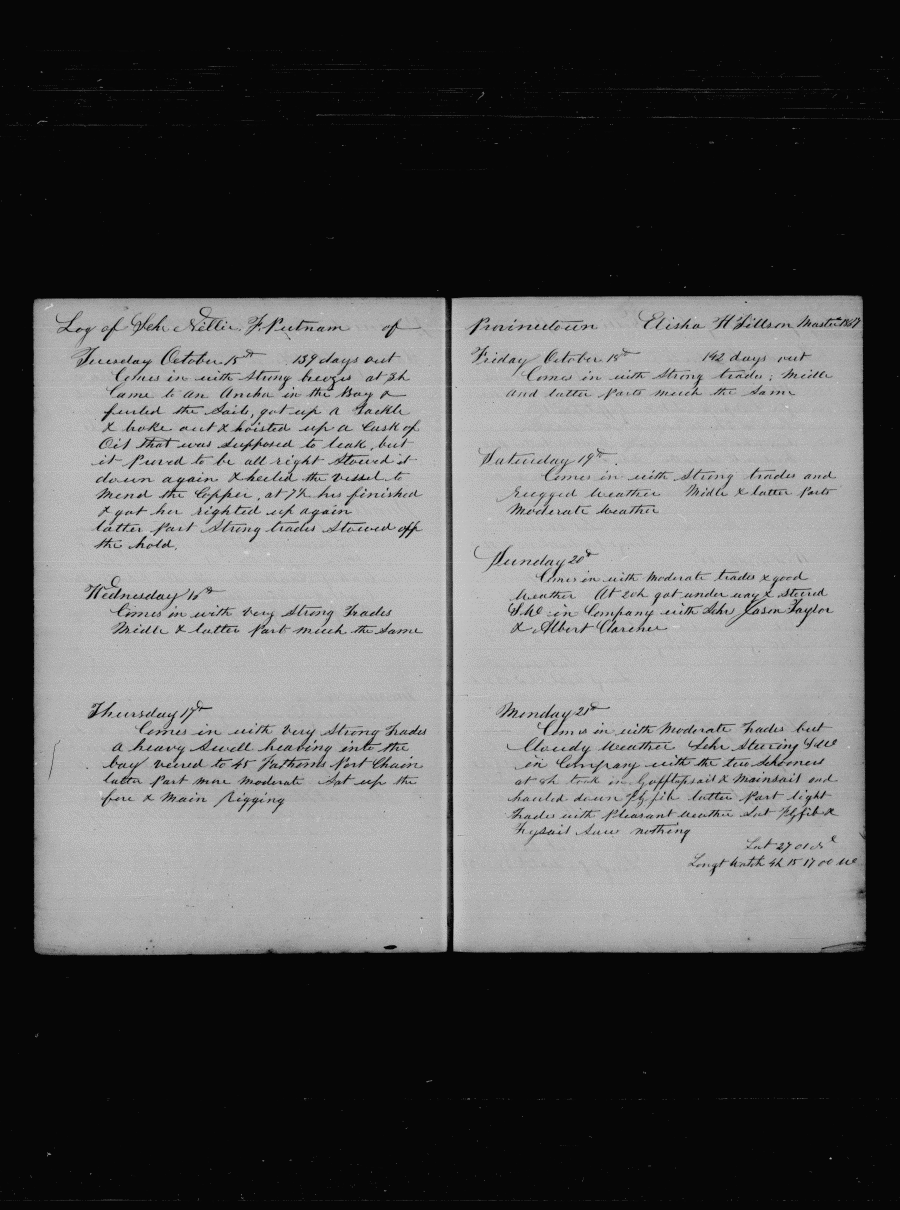 Log of Sch Nettie F. Putnam of
Tuesday October 15th 139 days out
Comes in with Strong breezes at 3h
Came to an Anchor in the Bay &
furled the Sails, got up a Tackle
& broke out & hoisted up a Cask of
Oil that was Supposed to leak, but
it Proved to be all right Stowed it
down again & heeled the vessel to
mend the Copper, at 7h hrs finished
& got her righted up again
latter Part Strong trades Stowed off
the hold.
Wednesday 16th
Comes in with very Strong Trades
Midle & latter Part much the Same
Thursday 17th
Comes in with very Strong Trades
a heavy Swell heaving into the
bay veered to 45 Fathoms Port Chain
latter Part more moderate Sat up the
fore & Main Rigging
Provincetown Elisha H Tillson Master 1867
Friday October 18th 142 days out
Comes in with Strong trades; Midle
and latter Parts much the Same
Saturday 19th.
Comes in with Strong trades and
Rugged Weather Midle & latter Parts
Moderate Weather
Sunday 20th
Comes in with Moderate trades & good
Weather At 20h got under way & steered
S.W. in Company with Schr Jason Taylor
& Albert Clarence
Monday 21st
Comes in with Moderate Trades but
Cloudy Weather Schr Steering SSW
in Company with the two Schooners
at 8h took in Gafftopsail & Mainsail and
hauled down Fly jib latter Part light
Trades with Pleasant Weather Set Fly jib &
Trysail Saw nothing
Lat 27
Longt Watch 4h 15 17 00 W